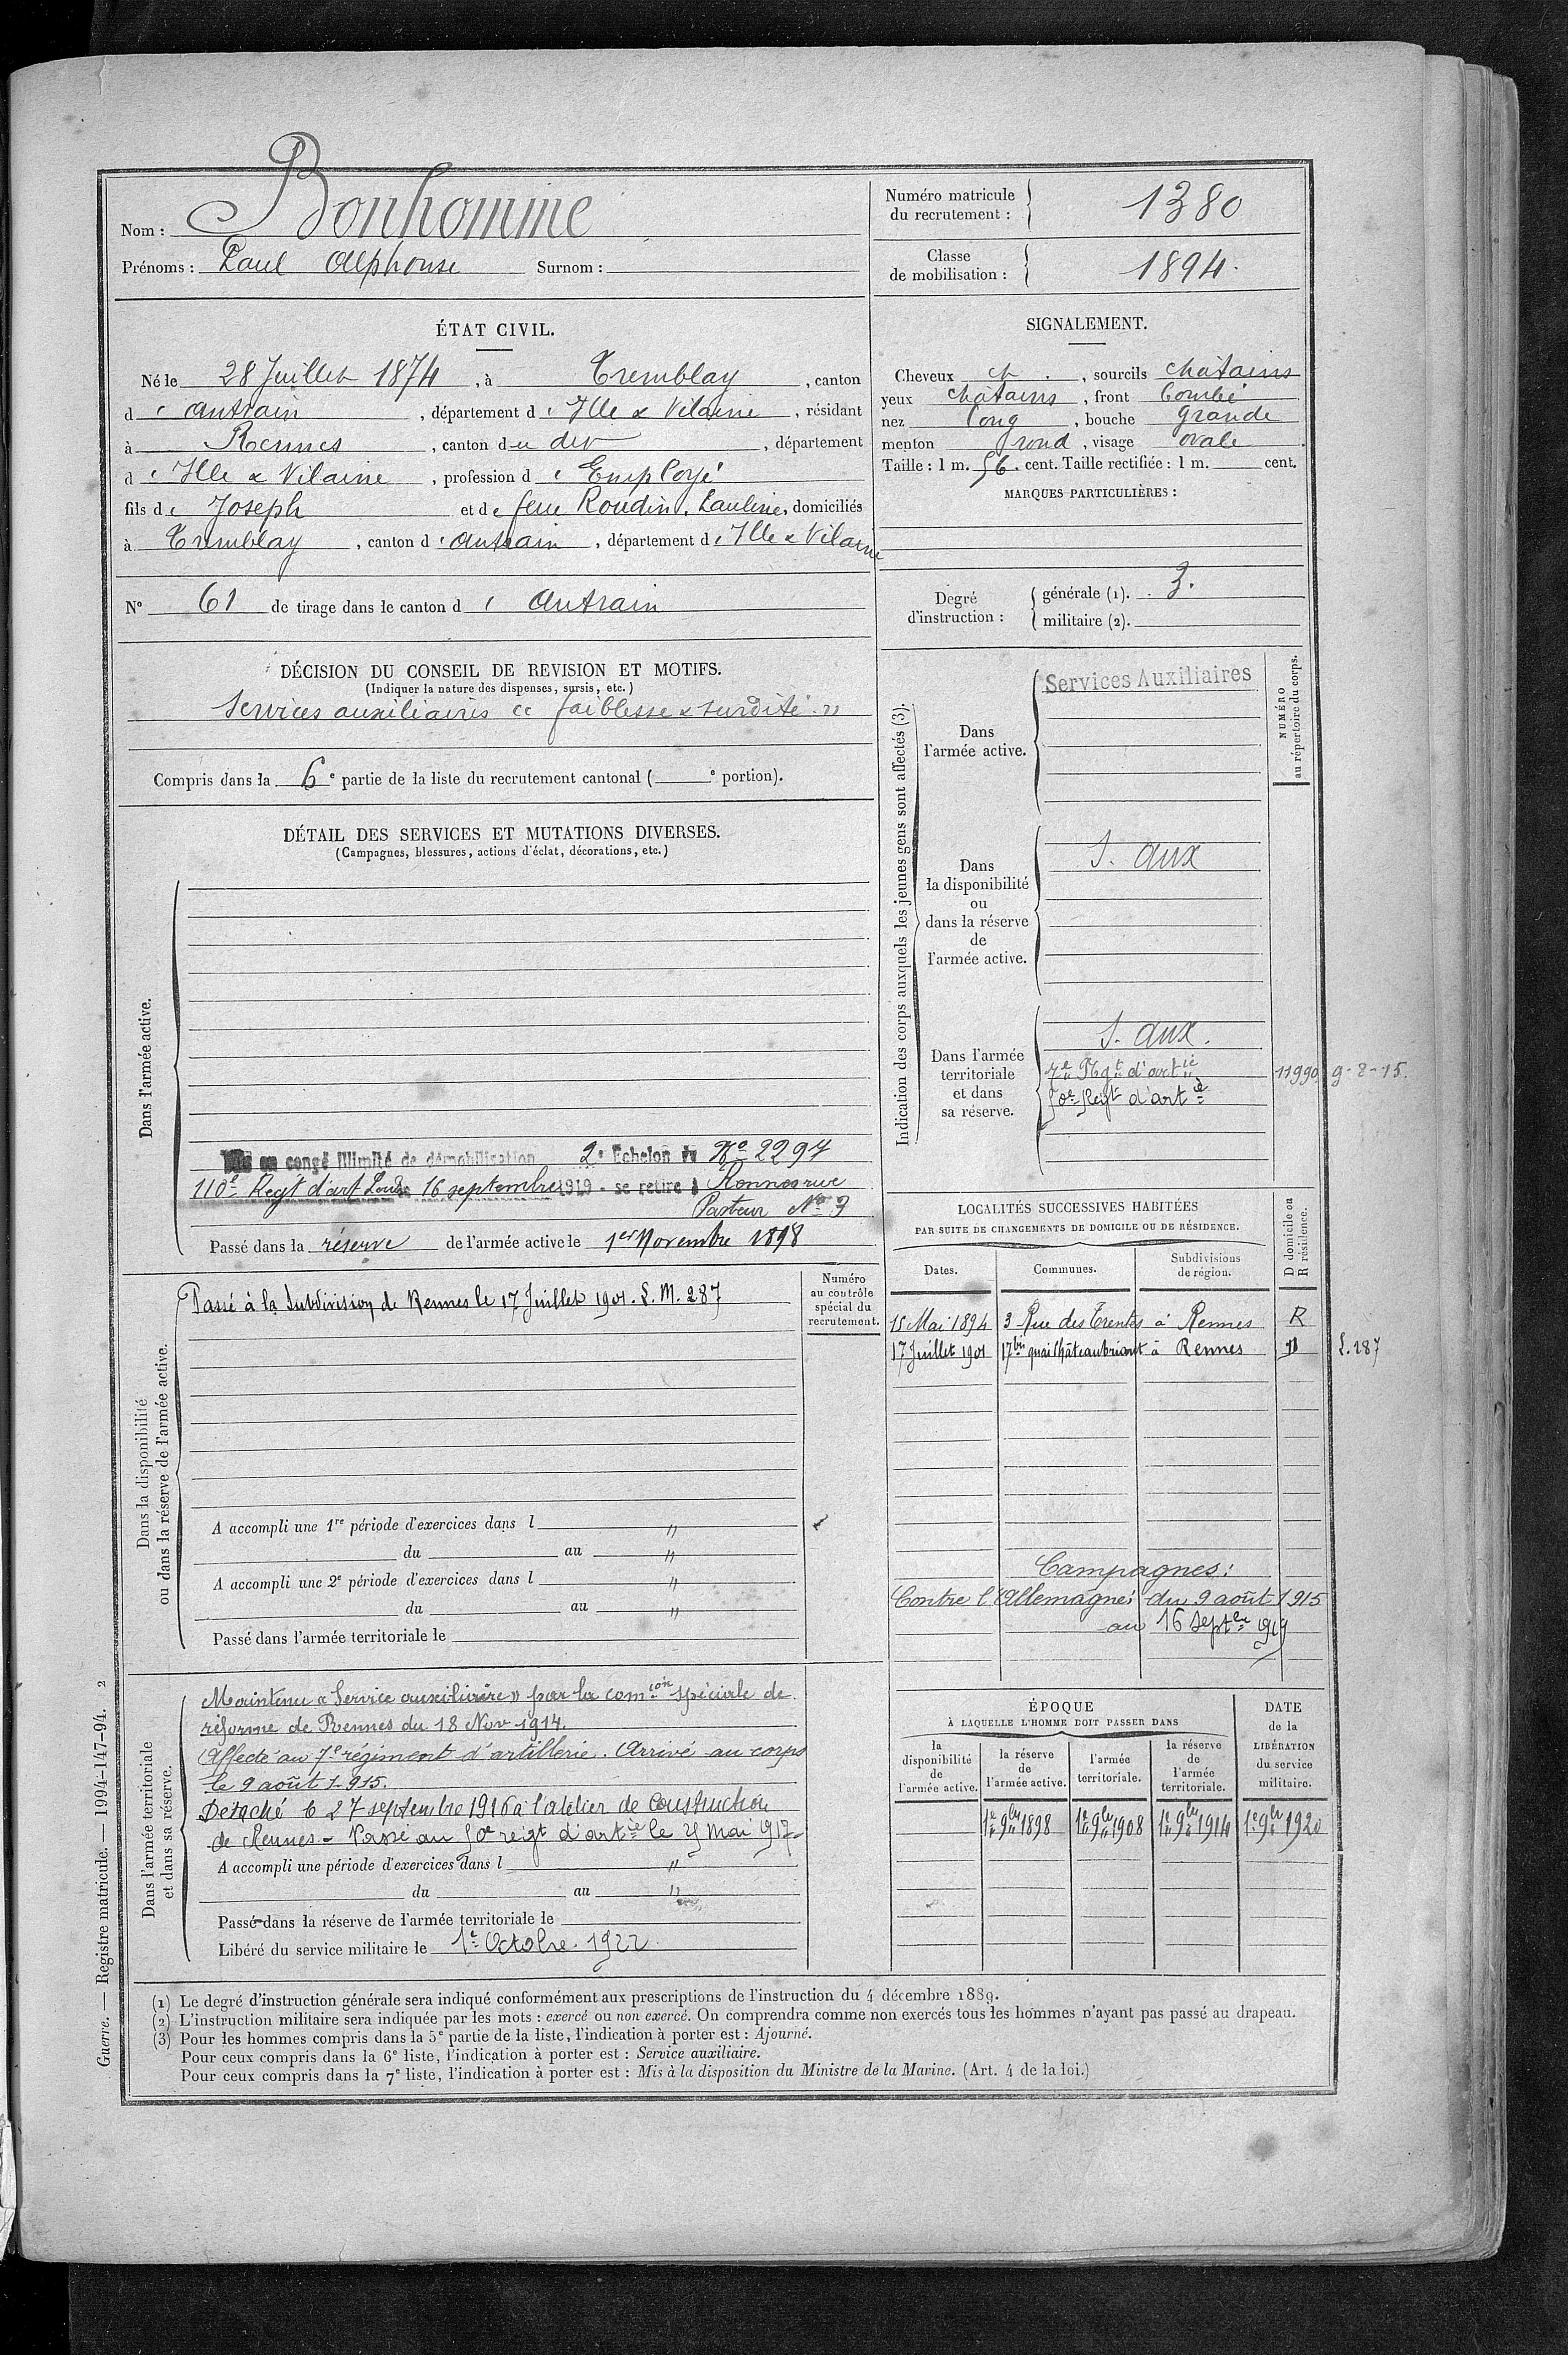 Nom : Bonhomme
Prénoms : Paul Alphonse Surnom :
Numéro matricule du recrutement : 1380
Classe de mobilisation : 1894.
ÉTAT CIVIL.
Né le 28 Juillet 1874, à Tremblay, canton
d'Antrain, département d'Ille & Vilaine, résidant
à Rennes, canton du dit, département
d'Ille & Vilaine, profession d'Employé
fils de Joseph et de feue Roudin, Pauline, domiciliés
à Tremblay, canton d'Antrain, département d'Ille & Vilaine
N° 61 de tirage dans le canton d'Antrain
SIGNALEMENT.
Cheveux ch., sourcils chatains
yeux chatains, front bombé
nez long, bouche grande
menton rond, visage ovale.
Taille : 1 m. 56. cent. Taille rectifiée : 1 m. cent.
MARQUES PARTICULIÈRES :
Degré d'instruction : générale (1). 3.
militaire (2).
DÉCISION DU CONSEIL DE REVISION ET MOTIFS.
(Indiquer la nature des dispenses, sursis, etc.)
Services auxiliaires « faiblesse & surdité »
Compris dans la 6e partie de la liste du recrutement cantonal ( e portion).
DÉTAIL DES SERVICES ET MUTATIONS DIVERSES.
(Campagnes, blessures, actions d'éclat, décorations, etc.)
Dans l'armée active.
Mis en congé illimité de démobilisation 2e Echelon No 2297
110e Regt d'art Lourde 16 septembre 1919 - se retire à Rennes rue
Pasteur No 3
Passé dans la réserve de l'armée active le 1er Novembre 1898
Indication des corps auxquels les jeunes gens sont affectés (3).
NUMÉRO au répertoire du corps.
Dans l'armée active.
Services Auxiliaires
Dans la disponibilité ou dans la réserve de l'armée active.
S. aux
Dans l'armée territoriale et dans sa réserve.
S. aux.
7e Rgt d'artie 11990 9-8-15.
50e Regt d'artie
Dans la disponibilité ou dans la réserve de l'armée active.
Numéro au contrôle spécial du recrutement.
Passé à la Subdivision de Rennes le 17 Juillet 1901. L. M. 287
A accompli une 1re période d'exercices dans l "
du au "
A accompli une 2e période d'exercices dans l "
du au "
Passé dans l'armée territoriale le
LOCALITÉS SUCCESSIVES HABITÉES
PAR SUITE DE CHANGEMENTS DE DOMICILE OU DE RÉSIDENCE.
Dates. Communes. Subdivisions de région. D domicile ou R résidence.
15 Mai 1894 3 Rue des Trentes à Rennes R
17 Juillet 1901 17bis quai Châteaubriant à Rennes D L. 287
Campagnes :
Contre l'Allemagne du 9 août 1915
au 16 Septbre 1919
Dans l'armée territoriale et dans sa réserve.
Maintenu « Service auxiliaire » par la comcon spéciale de
réforme de Rennes du 18 Nov 1914.
Affecté au 7e régiment d'artillerie. Arrivé au corps
le 9 août 1915.
Détaché le 27 septembre 1916 à l'atelier de construction
de Rennes - Passé au 50e regt d'artie le 25 Mai 1917
A accompli une période d'exercices dans l "
du au "
Passé dans la réserve de l'armée territoriale le
Libéré du service militaire le 1er Octobre 1922
ÉPOQUE
À LAQUELLE L'HOMME DOIT PASSER DANS
la disponibilité de l'armée active. la réserve de l'armée active. l'armée territoriale. la réserve de l'armée territoriale. DATE de la LIBÉRATION du service militaire.
1er 9bre 1898 1er 9bre 1908 1er 9bre 1914 1er 9bre 1920
(1) Le degré d'instruction générale sera indiqué conformément aux prescriptions de l'instruction du 4 décembre 1889.
(2) L'instruction militaire sera indiquée par les mots : exercé ou non exercé. On comprendra comme non exercés tous les hommes n'ayant pas passé au drapeau.
(3) Pour les hommes compris dans la 5e partie de la liste, l'indication à porter est : Ajourné.
Pour ceux compris dans la 6e liste, l'indication à porter est : Service auxiliaire.
Pour ceux compris dans la 7e liste, l'indication à porter est : Mis à la disposition du Ministre de la Marine. (Art. 4 de la loi.)
Guerre. — Registre matricule. — 1994-147-94. 2